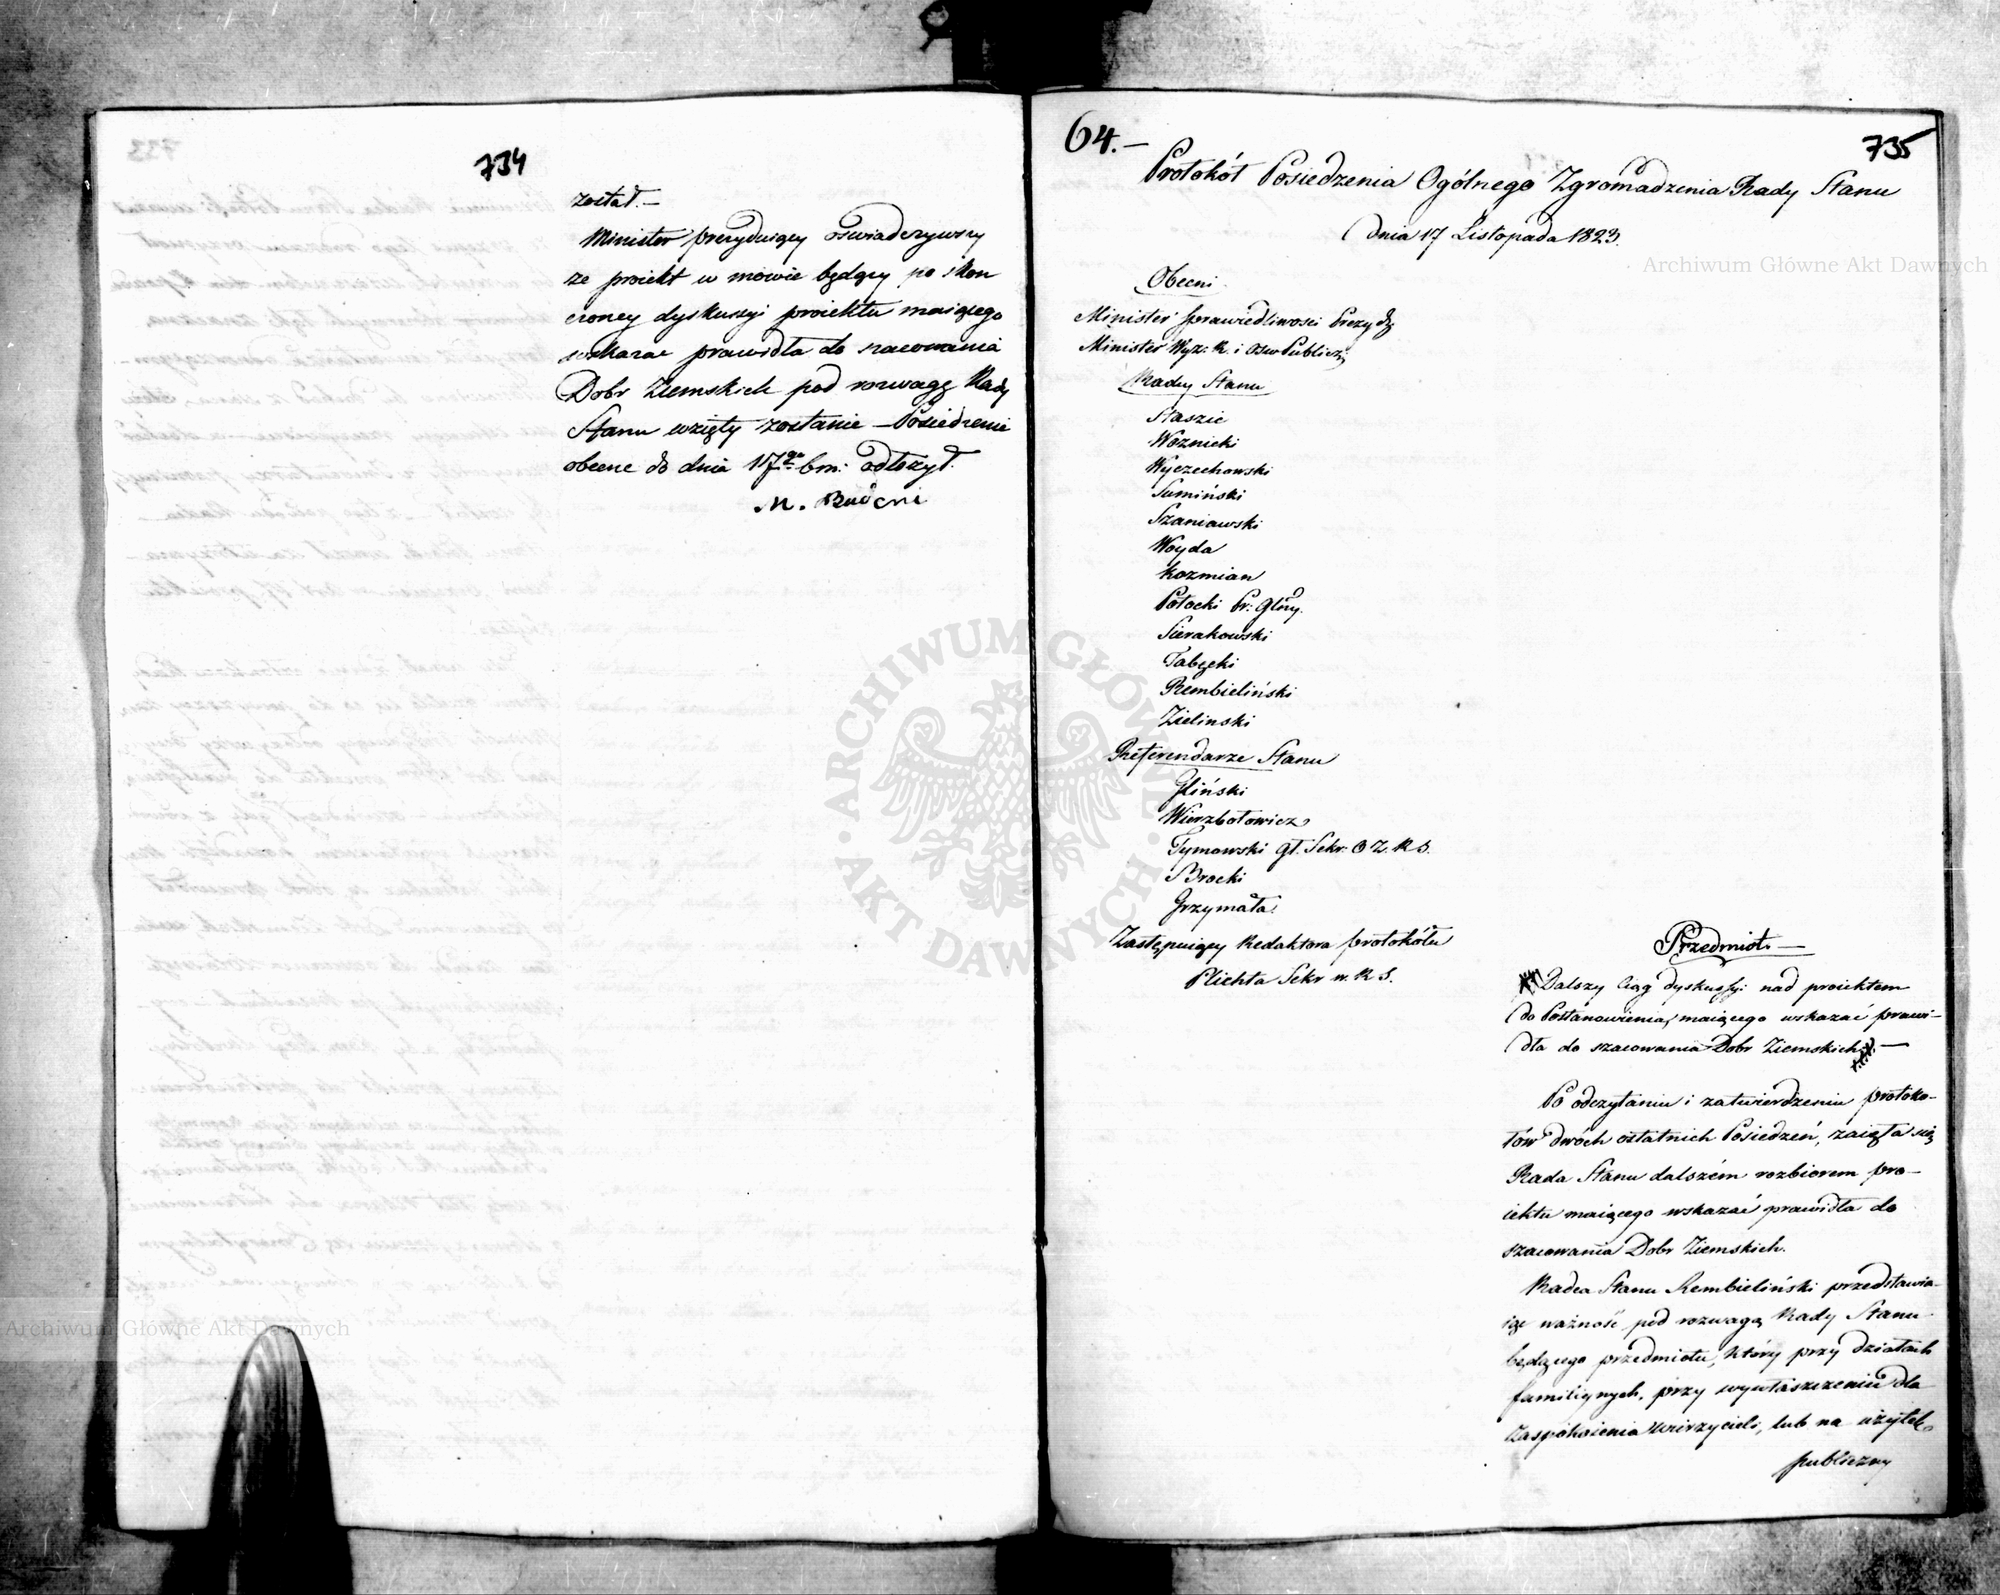 734
został.—
Minister prezyduiący oswiadczywszy
że proiekt w mowie będący po skon
czoney dyskusyi proiektu maiącego
wskazac prawidła do szacowania
Dobr Ziemskich pod rozwagę Rady
Stanu wzięty zostanie – Posiedzenie
obecne do dnia 17go bm: odłożył.
M. Badeni
64.—
735
Protokół Posiedzenia Ogólnego Zgromadzenia Rady Stanu
dnia 17 Listopada 1823.
Obecni
Minister Sprawiedliwosci Prezyd:
Minister Wyz: R. i Osw Publicz:
Radcy Stanu
Staszic
Woznicki
Wyczechowski
Sumiński
Szaniawski
Woyda
Kozmian
Potocki Pr: Glny.
Sierakowski
Tabęcki
Rembieliński
Zielinski
Referendarze Stanu
Gliński
Wierzbołowicz
Tymowski gł. Sekr: O Z. R S.
Brocki
Grzymała
Zastępuiący Redaktora protokółu
Plichta Sekr w. R S.
Przedmiot.—
Dalszy Ciąg dyskussyi nad proiektem
do Postanowienia, maiącego wskazać prawi–
dła do szacowania Dobr Ziemskich.—
Po odczytaniu i zatwierdzeniu protoko–
łów dwóch ostatnich Posiedzeń, zaięła się
Rada Stanu dalszém rozbiorem pro–
iektu maiącego wskazać prawidła do
szacowania Dobr Ziemskich.
Radca Stanu Rembieliński przedstawia–
iąc ważność pod rozwagą Rady Stanu
będącego przedmiotu, który przy działach
familiynych, przy wywłaszczeniu dla
zaspokoienia wierzycieli, lub na użytek
publiczny
Archiwum Główne Akt Dawnych
Archiwum Główne Akt Dawnych
ARCHIWUM GŁÓWNE · AKT DAWNYCH ·